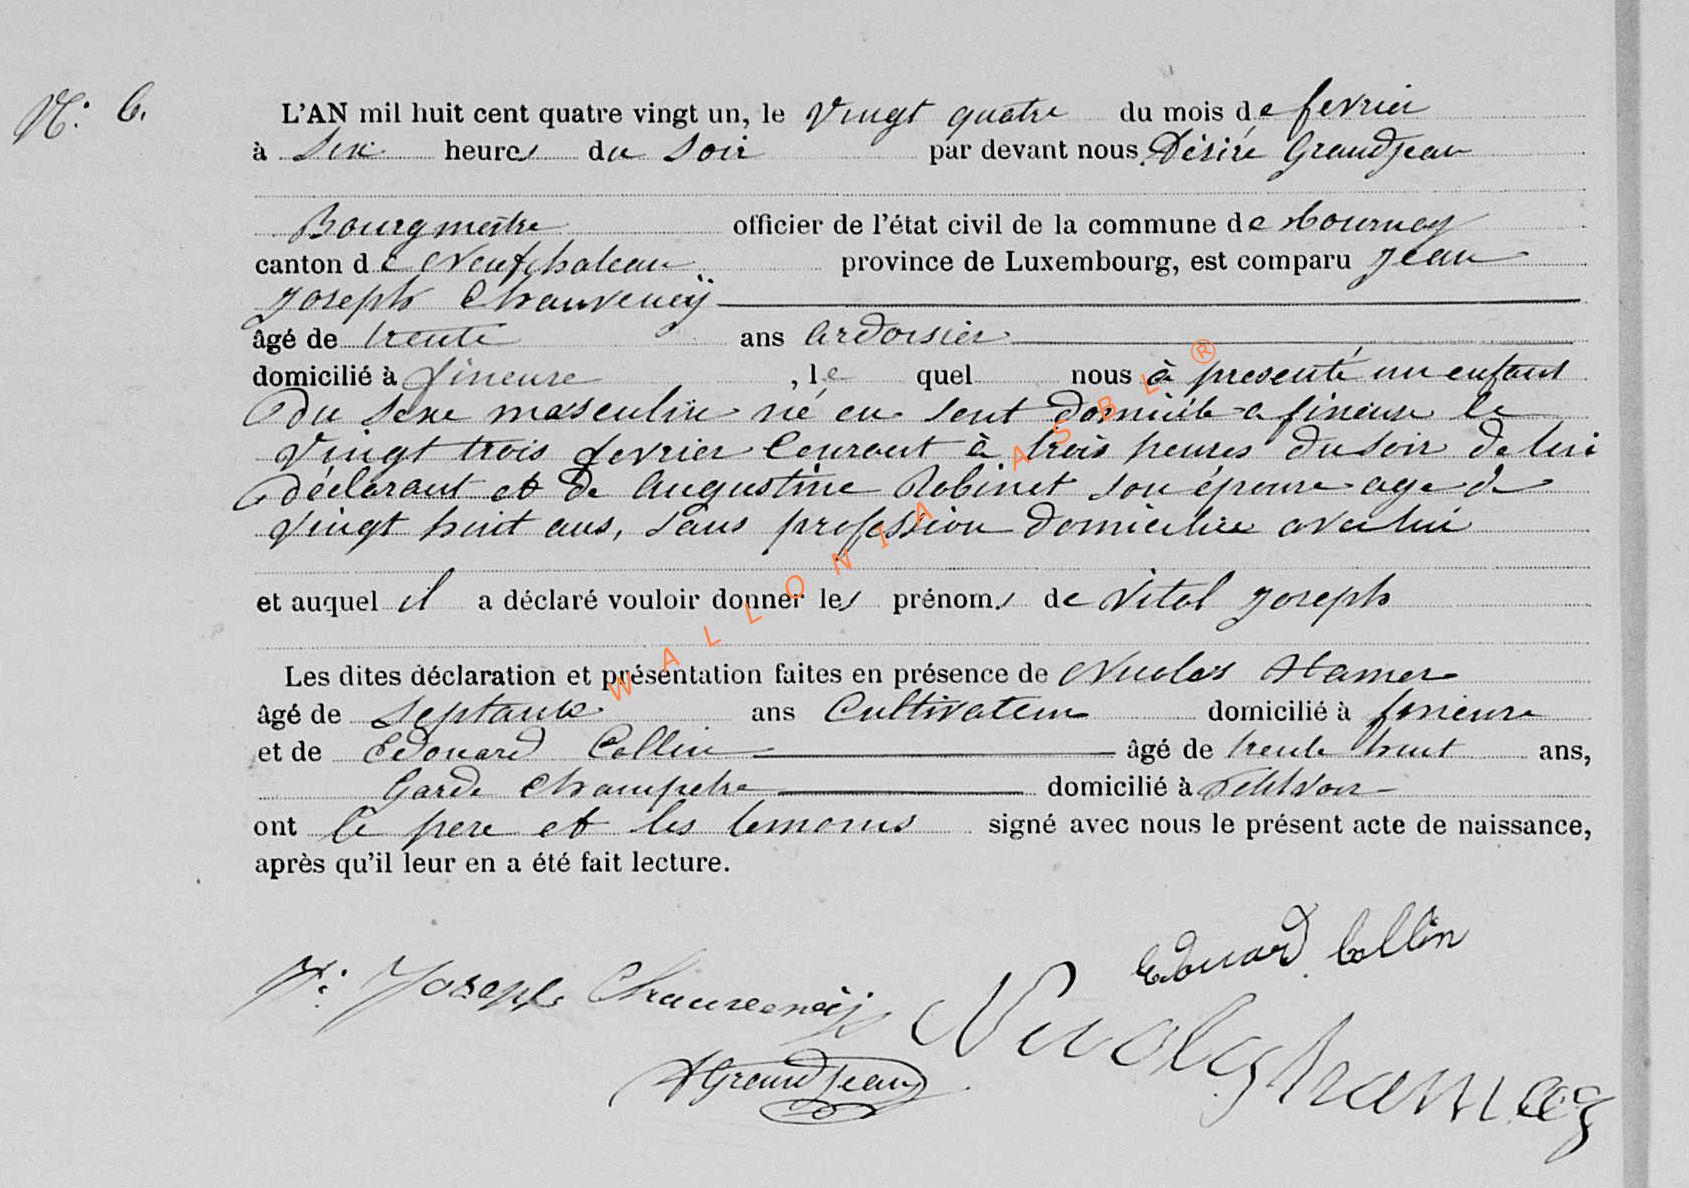 N° 6.
L'AN mil huit cent quatre vingt un, le Vingt quatre du mois de fevrier
à Six heures du Soir par devant nous Désiré Grandjean
Bourgmestre officier de l'état civil de la commune de Tournay
canton de Neufchateau. province de Luxembourg, est comparu Jean
Joseph Chauveneÿ
âgé de trente ans ardoisier
domicilié à fineuse, le quel nous à presenté un enfant
Du sexe masculin né en sont domicile a fineuse le
Vingt trois fevrier Courant à trois heures du soir de lui
déclarant et de Augustine Robinet son épouse age de
vingt huit ans, sans profession domiciliée avec lui
et auquel il a déclaré vouloir donner les prénoms de Vital Joseph
Les dites déclaration et présentation faites en présence de Nicolas Hamer
âgé de Septante ans Cultivateur domicilié à fineuse
et de Edouard Collin âgé de trente huit ans,
Garde Champetre domicilié à Petitvoir
ont le pere et les temoins signé avec nous le présent acte de naissance,
après qu'il leur en a été fait lecture.
Edouard Collin
J: Joseph Chauveneÿ
Nicolas hamer
DGrandjean
WALLONIA ASBL ®